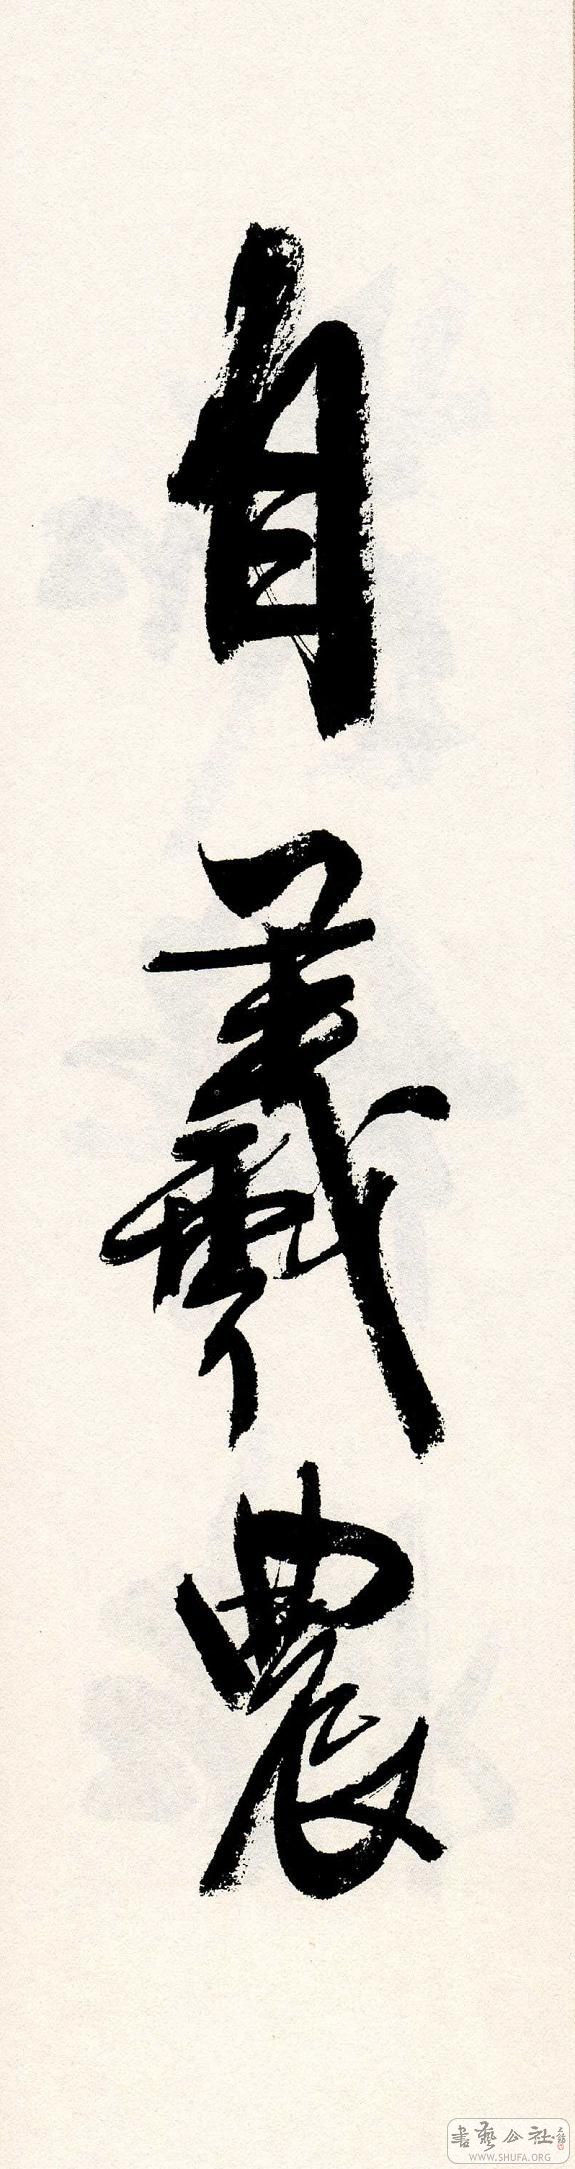 自羲農
書藝公社
WWW.SHUFA.ORG